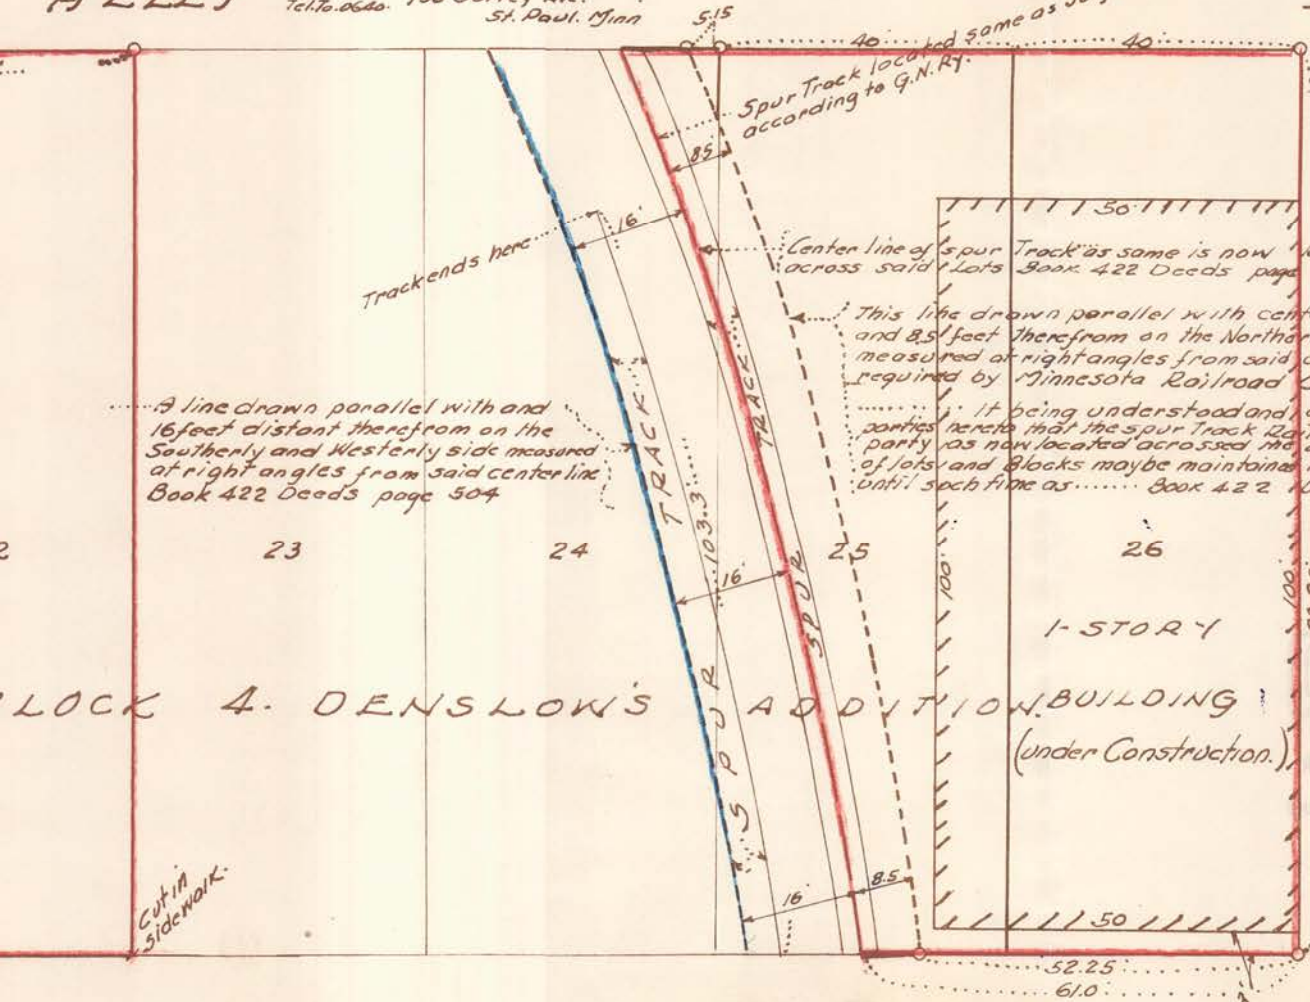 Tel.To.0640.
St. Paul. Minn
5.15
40
40
Spur Track located same as
according to G.N.Ry.
8.5
16'
Track ends here
50
Center line of spur Track as same is now
across said Lots Book 422 Deeds page
This line drawn parallel with
and 8.5 feet therefrom on the
measured at right angles from said
required by Minnesota Railroad
It being understood and
parties hereto that the spur Track
party as now located acrossed
of lots and Blocks maybe maintained
until such time as ...... Book 422
A line drawn parallel with and
16 feet distant therefrom on the
Southerly and Westerly side measured
at right angles from said center line
Book 422 Deeds page 504
TRACK
TRACK
103.3
23
24
25
26
16'
100'
100'
SPUR
SPUR
1-STORY
LOCK 4. DENSLOW'S ADDITION.
BUILDING
(under Construction.)
Cut in
sidewalk.
16'
8.5
50
52.25
61.0